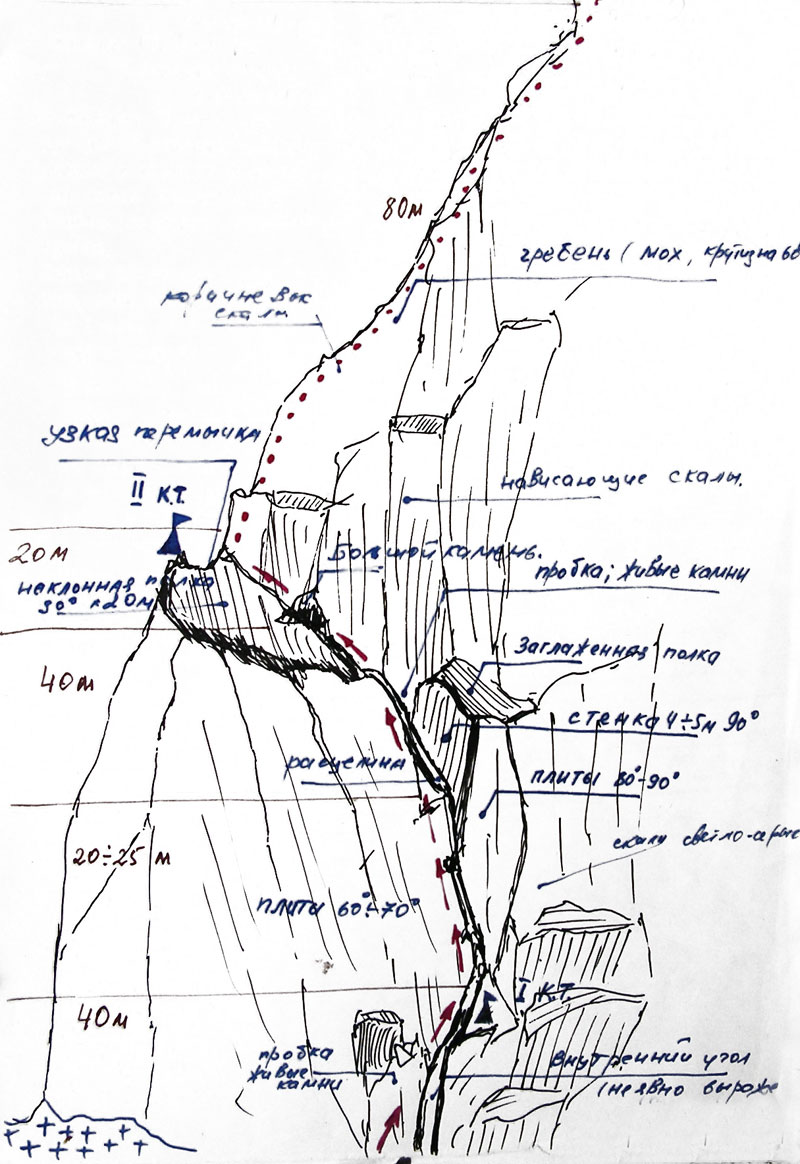 80м
гребень (мох, крутизна 60
коричневые
скалы
узкая перемычка
II К.Т.
нависающие скалы.
20м
Большой камень.
пробка; живые камни
наклонная полка
30° 20м
Заглаженная полка
40м
стенка 4÷5м 90°
расщелина
плиты 80°-90°
20÷25 м
скалы светло-серые
плиты 60°÷70°
I К.Т.
40м
пробка
живые
камни
внутренний угол
(неявно выраже